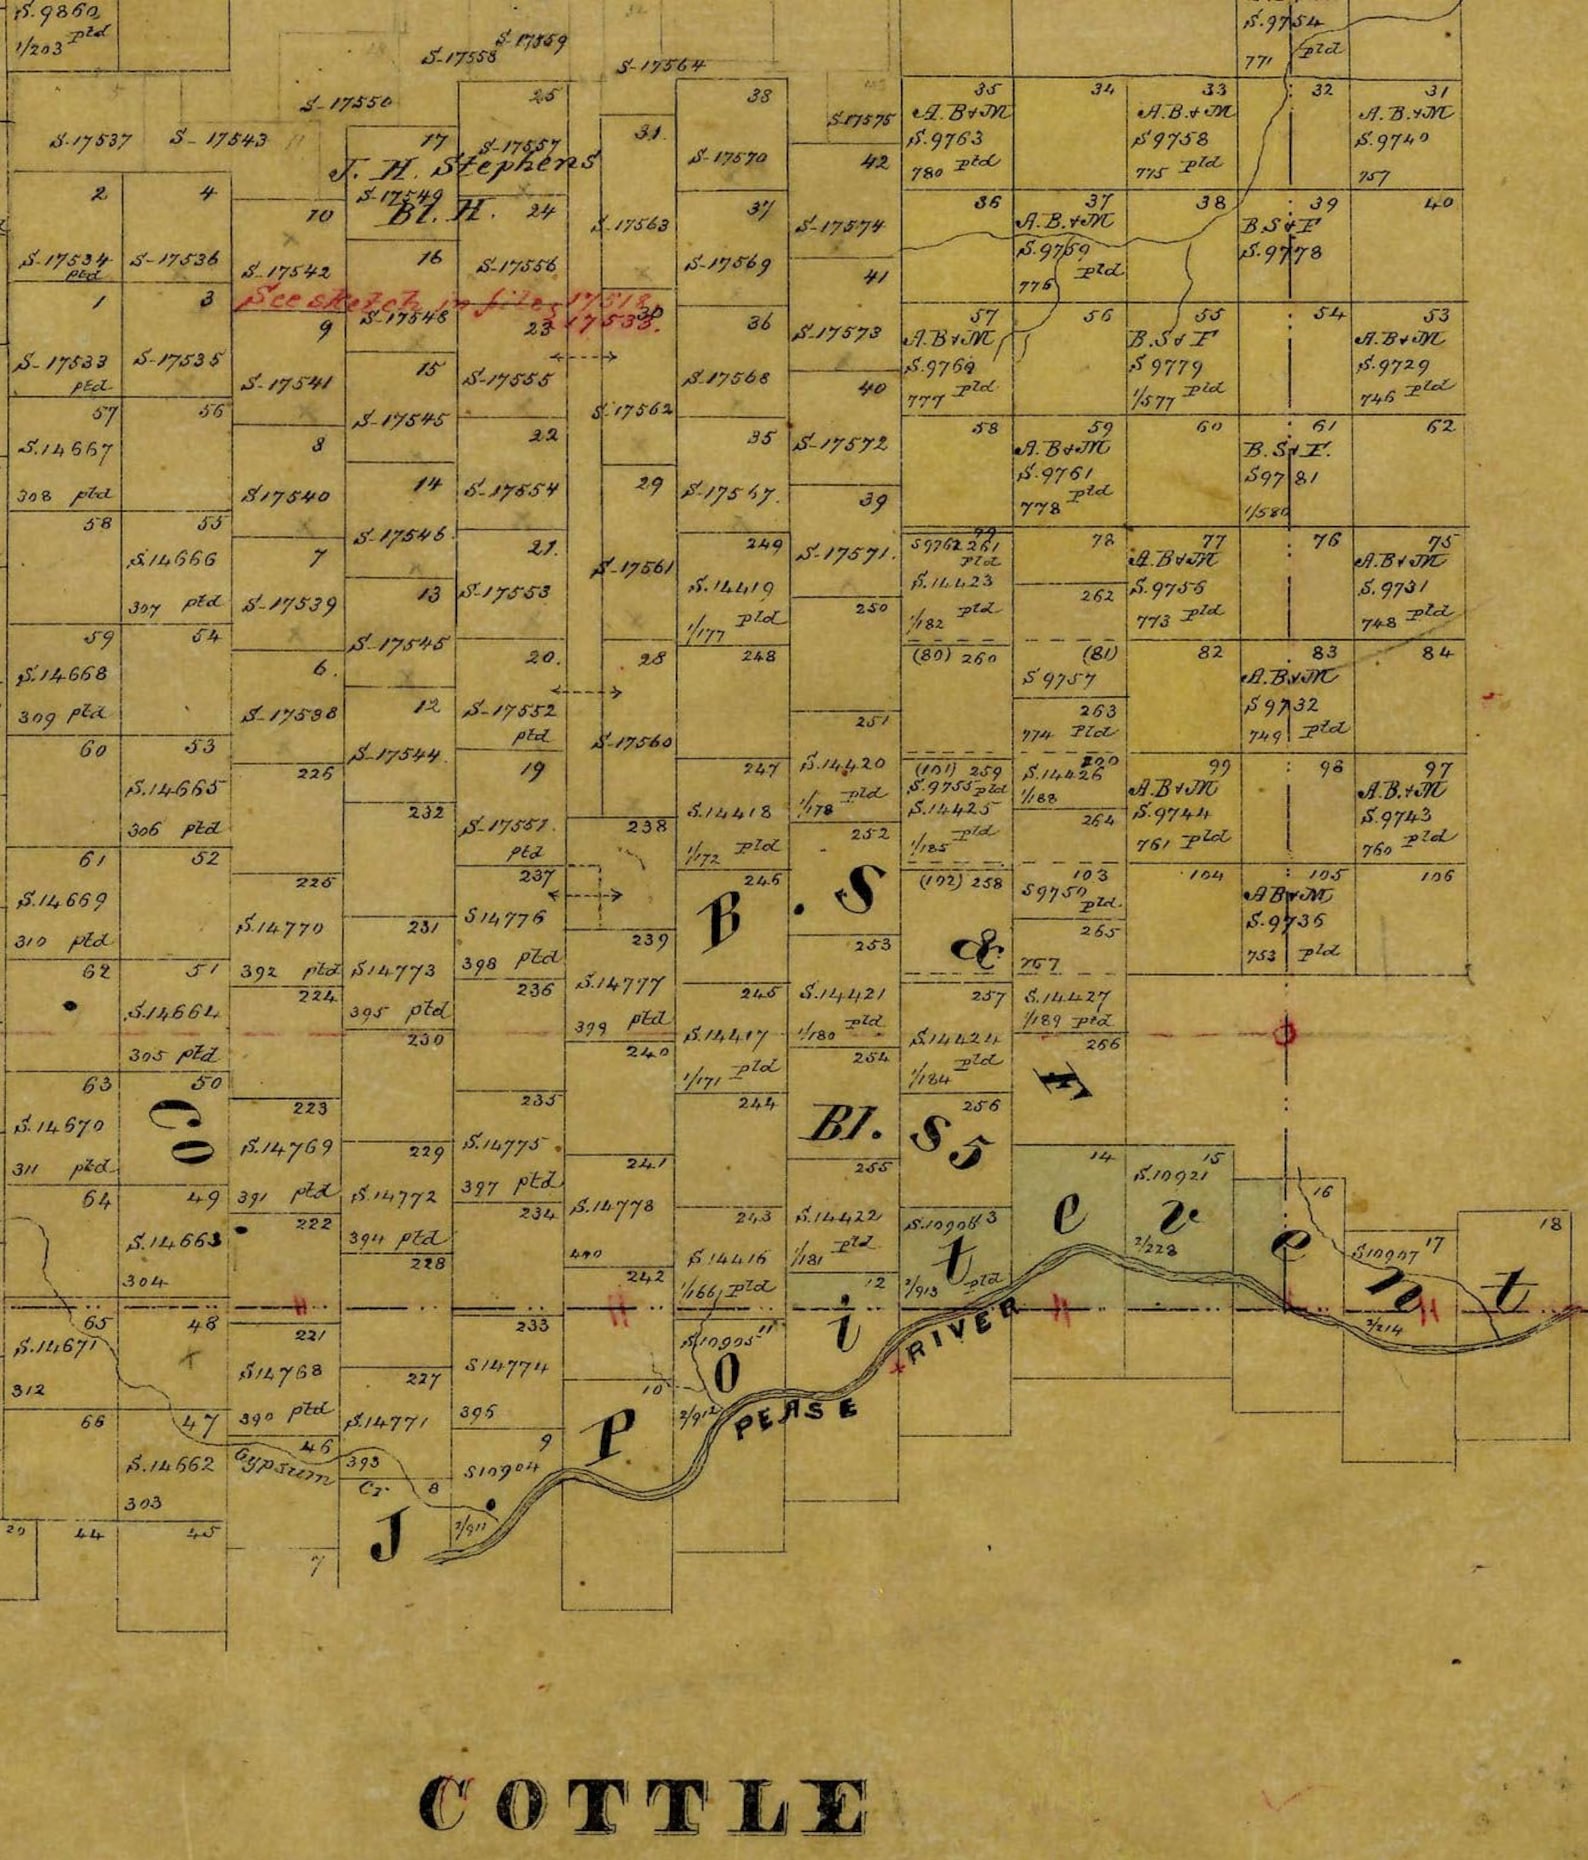 S.9860
1/203 Ptd
S.9754
771 Ptd
S-17558
S-17559
S-17564
S-17550
25
38
S-17575
35
A.B&M
S.9763
780 Ptd
34
33
A.B.&M
S9758
775 Ptd
32
31
A.B.&M
S.9740
757
S.17537
S-17543
17
S-17557
31.
S-17570
42
J. H. Stephens
Bl. H.
S-17549
2
4
10
24
37
36
37
A.B.&M
S.9759
776 Ptd
38
39
B.S&F
S.9778
40
S-17534
Ptd
S-17536
S-17542
16
S-17556
S-17563
S-17569
S-17574
41
1
3
See sketch in file
9
S-17548
23
30
36
S-17573
57
A.B&M
777 Ptd
56
55
B.S&F
S9779
1/577 Ptd
54
53
A.B&M
S.9729
746 Ptd
S-17533
Ptd
S-17535
S-17541
15
S-17555
S-17568
40
57
S.14667
308 Ptd
56
8
S-17545
22
S-17562
35
S-17572
58
59
A.B&M
S.9761
778 Ptd
60
61
B.S&F.
S9781
1/580
62
S17540
14
S-17554
29
S-17567.
39
58
55
S.14666
307 Ptd
7
S-17546
21.
S-17561
249
S.14419
1/177 Ptd
S-17571.
79
S9762 261
Ptd
S.14423
1/182 Ptd
78
262
77
A.B&M
S.9756
773 Ptd
76
75
A.B&M
S.9731
748 Ptd
S-17539
13
S-17553
250
59
S.14668
309 Ptd
54
6.
S-17545
20.
28
248
(80) 260
(81)
S9757
82
83
A.B&M
S9732
749 Ptd
84
S-17538
12
S-17552
Ptd
251
263
774 Ptd
60
53
S.14665
306 Ptd
226
S-17544
19
S-17560
247
S.14418
1/172 Ptd
S.14420
1/178 Ptd
(101) 259
S.9755 Ptd
S.14425
1/185 Ptd
S.14426
1/188
99
A.B&M
S9744
761 Ptd
98
97
A.B.&M
S.9743
760 Ptd
232
S-17551
Ptd
238
252
264
61
S.14669
310 Ptd
52
225
S.14770
392 Ptd
237
S14776
398 Ptd
246
(102) 258
103
S9750
Ptd.
104
105
AB&M
S.9736
753 Ptd
106
B. S & F
231
S14773
395 Ptd
239
S.14777
399 Ptd
253
265
767
62
51
S.14664
305 Ptd
224
236
245
S.14417
1/171 Ptd
S.14421
1/180 Ptd
257
S.14424
1/184 Ptd
S.14427
1/189 Ptd
230
240
254
266
63
S.14670
311 Ptd
50
Co
223
S.14769
391 Ptd
235
S.14775
397 Ptd
244
Bl. S5
256
229
S.14772
394 Ptd
241
S.14778
400
255
14
15
S.10921
2/228
64
49
S.14663
304
222
234
243
S14416
1/166 Ptd
S.14422
1/181 Ptd
2/913 Ptd
16
17
18
228
242
12
65
S.14671
312
48
221
S14768
390 Ptd
233
S14774
396
S10905 11
RIVER
2/214
227
S.14771
393
10
2/912
PEASE
66
47
S.14662
303
46
Gypsum
Cr.
8
9
S10904
2/911
J Poitevent
20
44
45
7
COTTLE